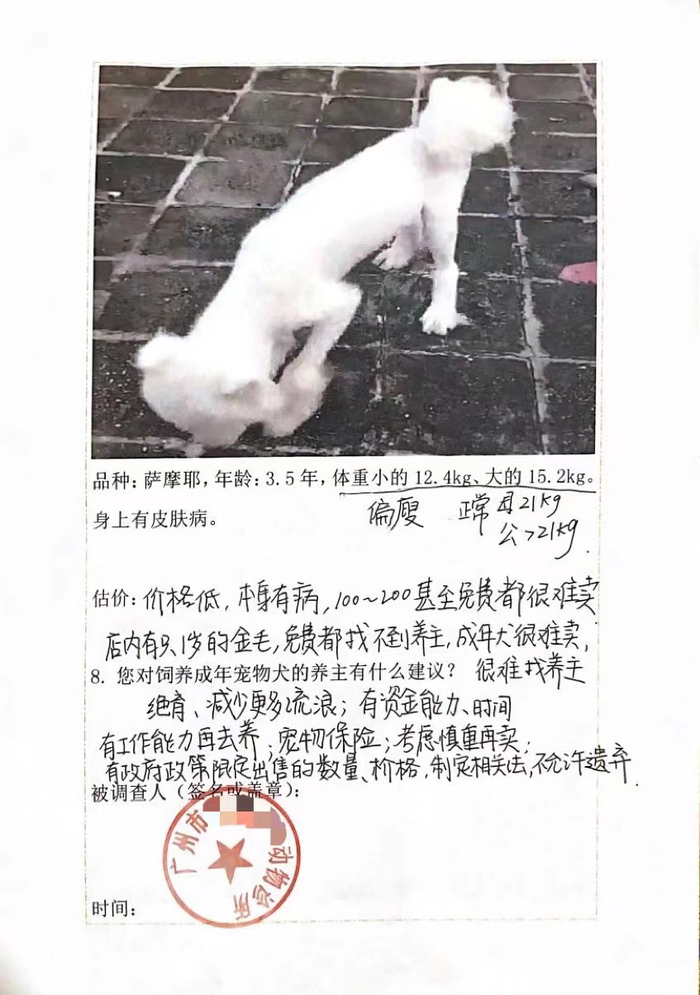 品种:萨摩耶,年龄:3.5年,体重小的12.4kg、大的15.2kg。
身上有皮肤病。
偏瘦 正常 母21kg
公>21kg.
估价:价格低,本身有病,100~200甚至免费都很难卖
店内有只1岁的金毛,免费都找不到养主,成年犬很难卖,
8. 您对饲养成年宠物犬的养主有什么建议? 很难找养主
绝育、减少更多流浪;有资金能力、时间
有工作能力再去养;宠物保险;考虑慎重再卖;
有政府政策限定出售的数量、价格,制定相关法,不允许遗弃.
被调查人(签名或盖章):
广州市
动物诊所
时间: